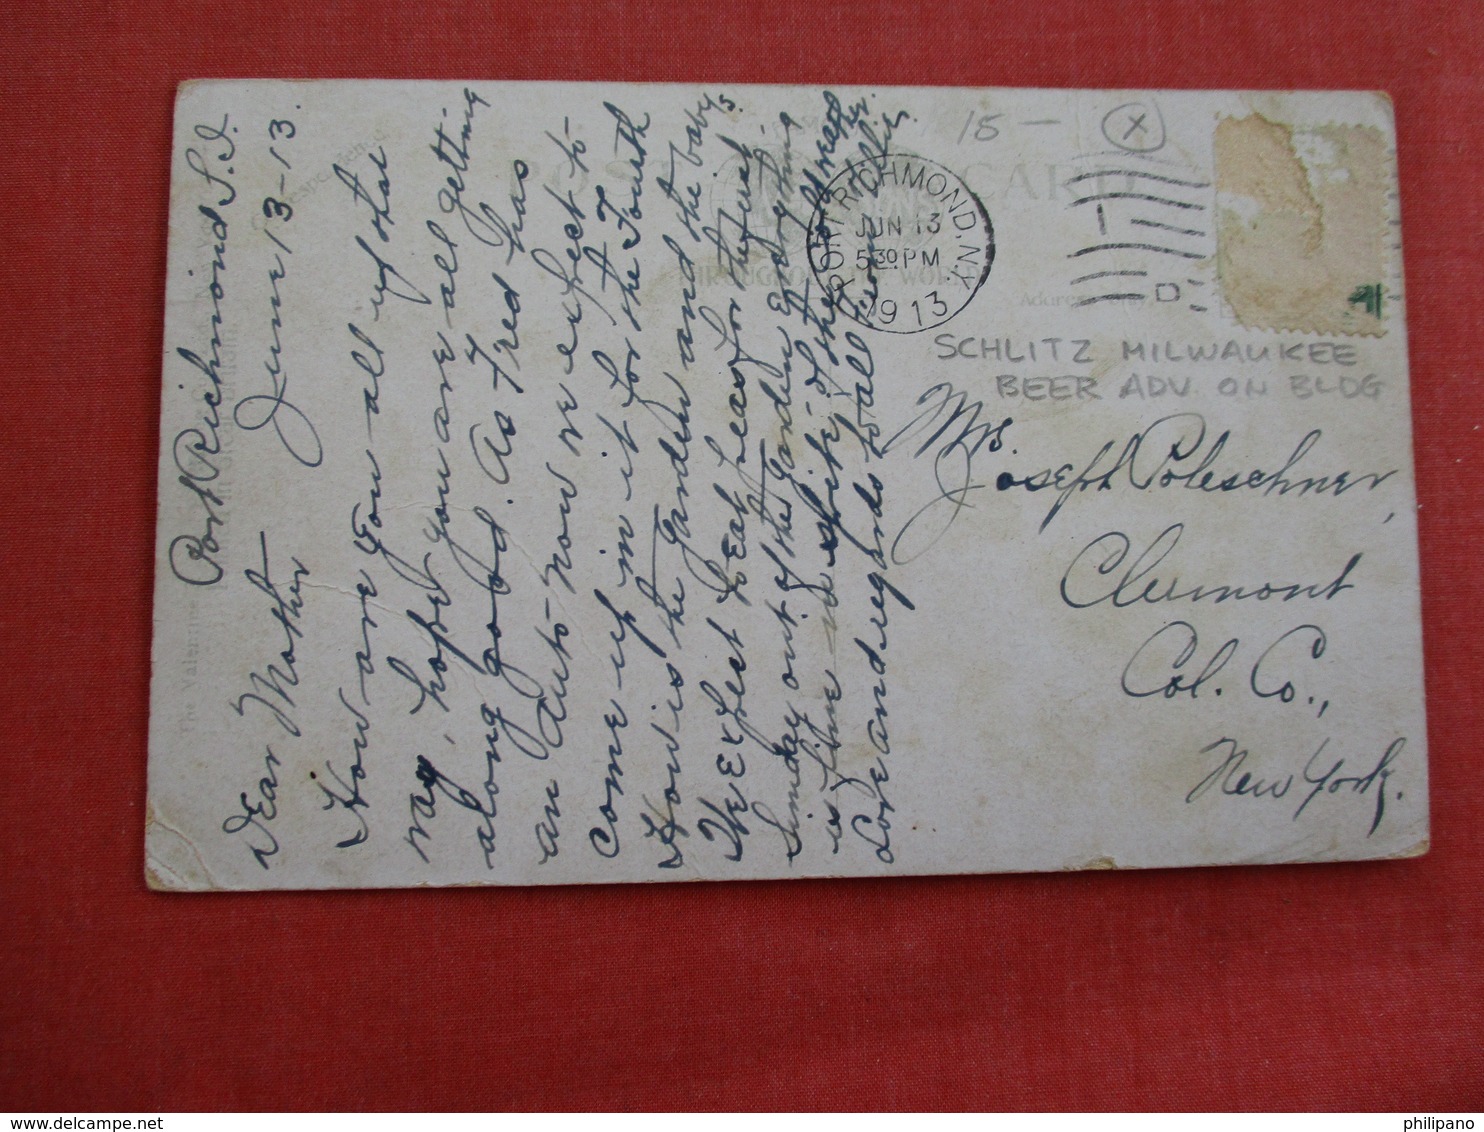 Port Richmond S.I.
June 13-13.
Dear Mother
How are you all up that
way, hope you are all getting
along good. As Fred has
an Auto now we expect to
come up in it for the Fourth
How is the garden and the babys.
We Expect to Eat peas for
Sunday out of the garden Everything
is fine in spite of the cold weather.
Love and regards to all from
POST CARD
PORT RICHMOND, N.Y.
JUN 13
5 30 PM
1913
15 —
X
SCHLITZ MILWAUKEE
BEER ADV. ON BLDG
Mrs.
Joseph Poleschner,
Clermont
Col. Co.,
New York.
The Valentine
philipano